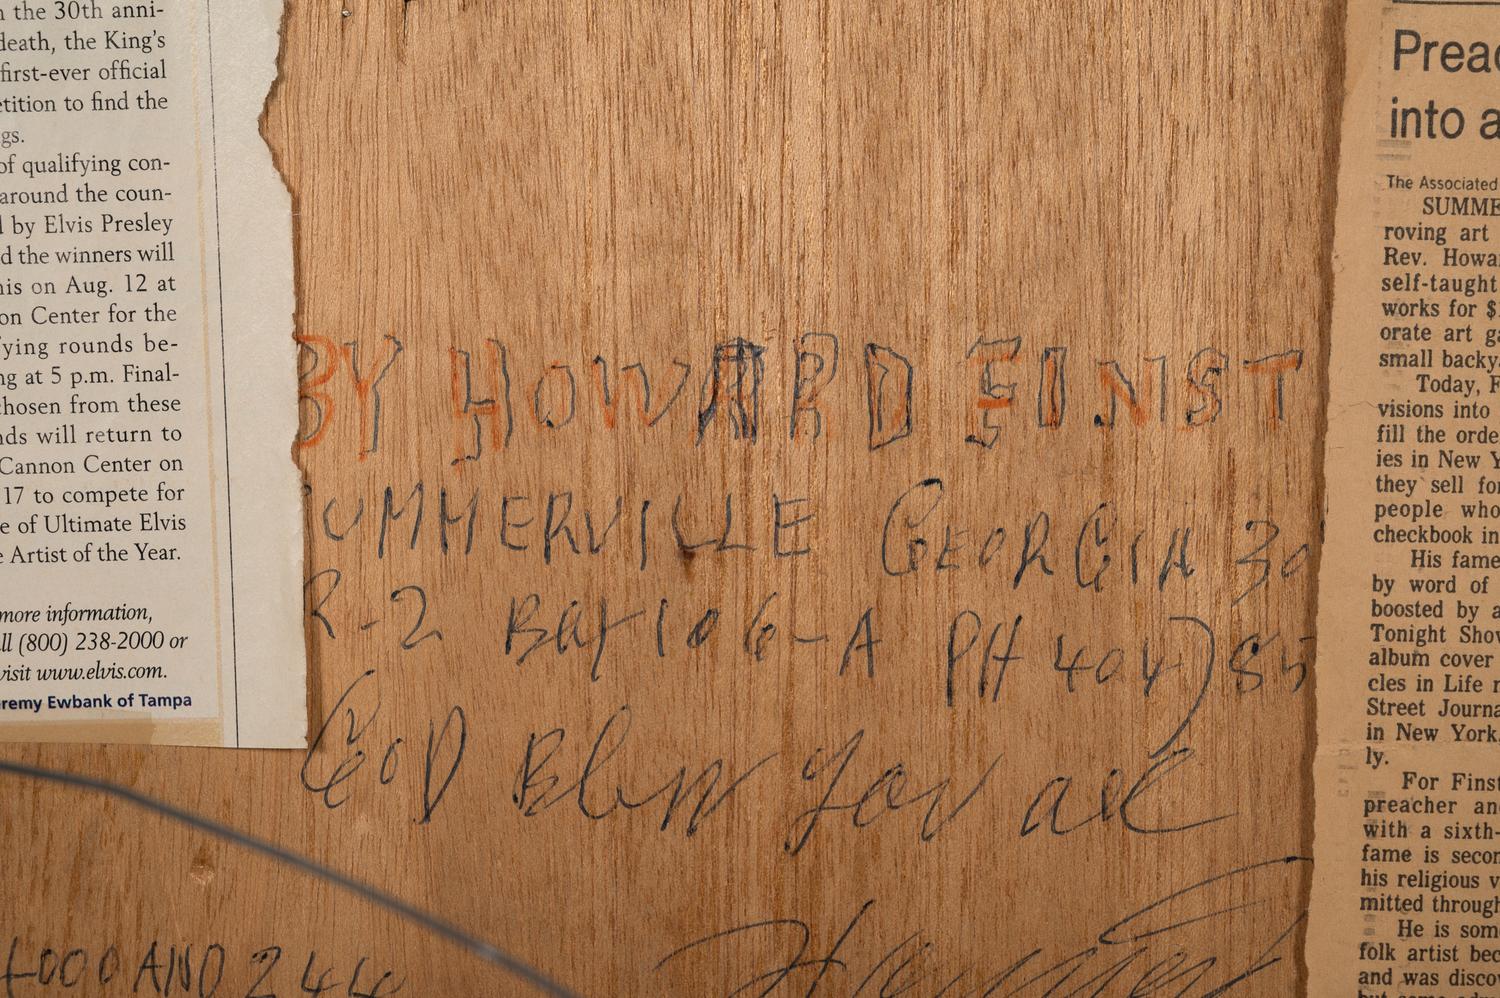 n the 30th anni-
death, the King's
first-ever official
etition to find the
gs.
of qualifying con-
around the coun-
d by Elvis Presley
d the winners will
his on Aug. 12 at
on Center for the
fying rounds be-
ng at 5 p.m. Final-
chosen from these
nds will return to
Cannon Center on
17 to compete for
e of Ultimate Elvis
e Artist of the Year.
more information,
ll (800) 238-2000 or
visit www.elvis.com.
eremy Ewbank of Tampa
BY HOWARD FINST
UMMERVILLE GEORGIA 30
R-2 Box 106-A PH 404) 85
GOD Bless you all
4000 AND 244
Preac
into a
The Associated
SUMME
roving art
Rev. Howar
self-taught
works for $
orate art ga
small backy
Today, F
visions into
fill the orde
ies in New Y
they sell for
people who
checkbook in
His fame
by word of
boosted by a
Tonight Show
album cover
cles in Life m
Street Journa
in New York,
ly.
For Finst
preacher and
with a sixth-
fame is secon
his religious v
mitted through
He is som
folk artist bec
and was disco